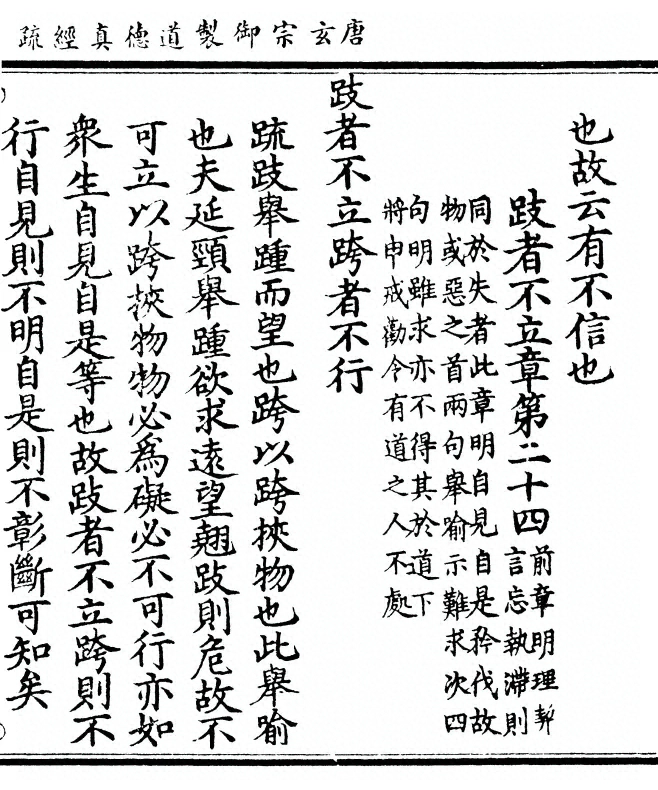 唐玄宗御製道德真經疏
也故云有不信也
跂者不立章第二十四
前章明理契
言忘執滯則
同於失者此章明自見自是矜伐故
物或惡之首兩句舉喻示難求次四
句明雖求亦不得其於道下
將申戒勸令有道之人不處
跂者不立跨者不行
疏跂舉踵而望也跨以跨挾物也此舉喻
也夫延頸舉踵欲求遠望翹跂則危故不
可立以跨挾物物必爲礙必不可行亦如
衆生自見自是等也故跂者不立跨則不
行自見則不明自是則不彰斷可知矣